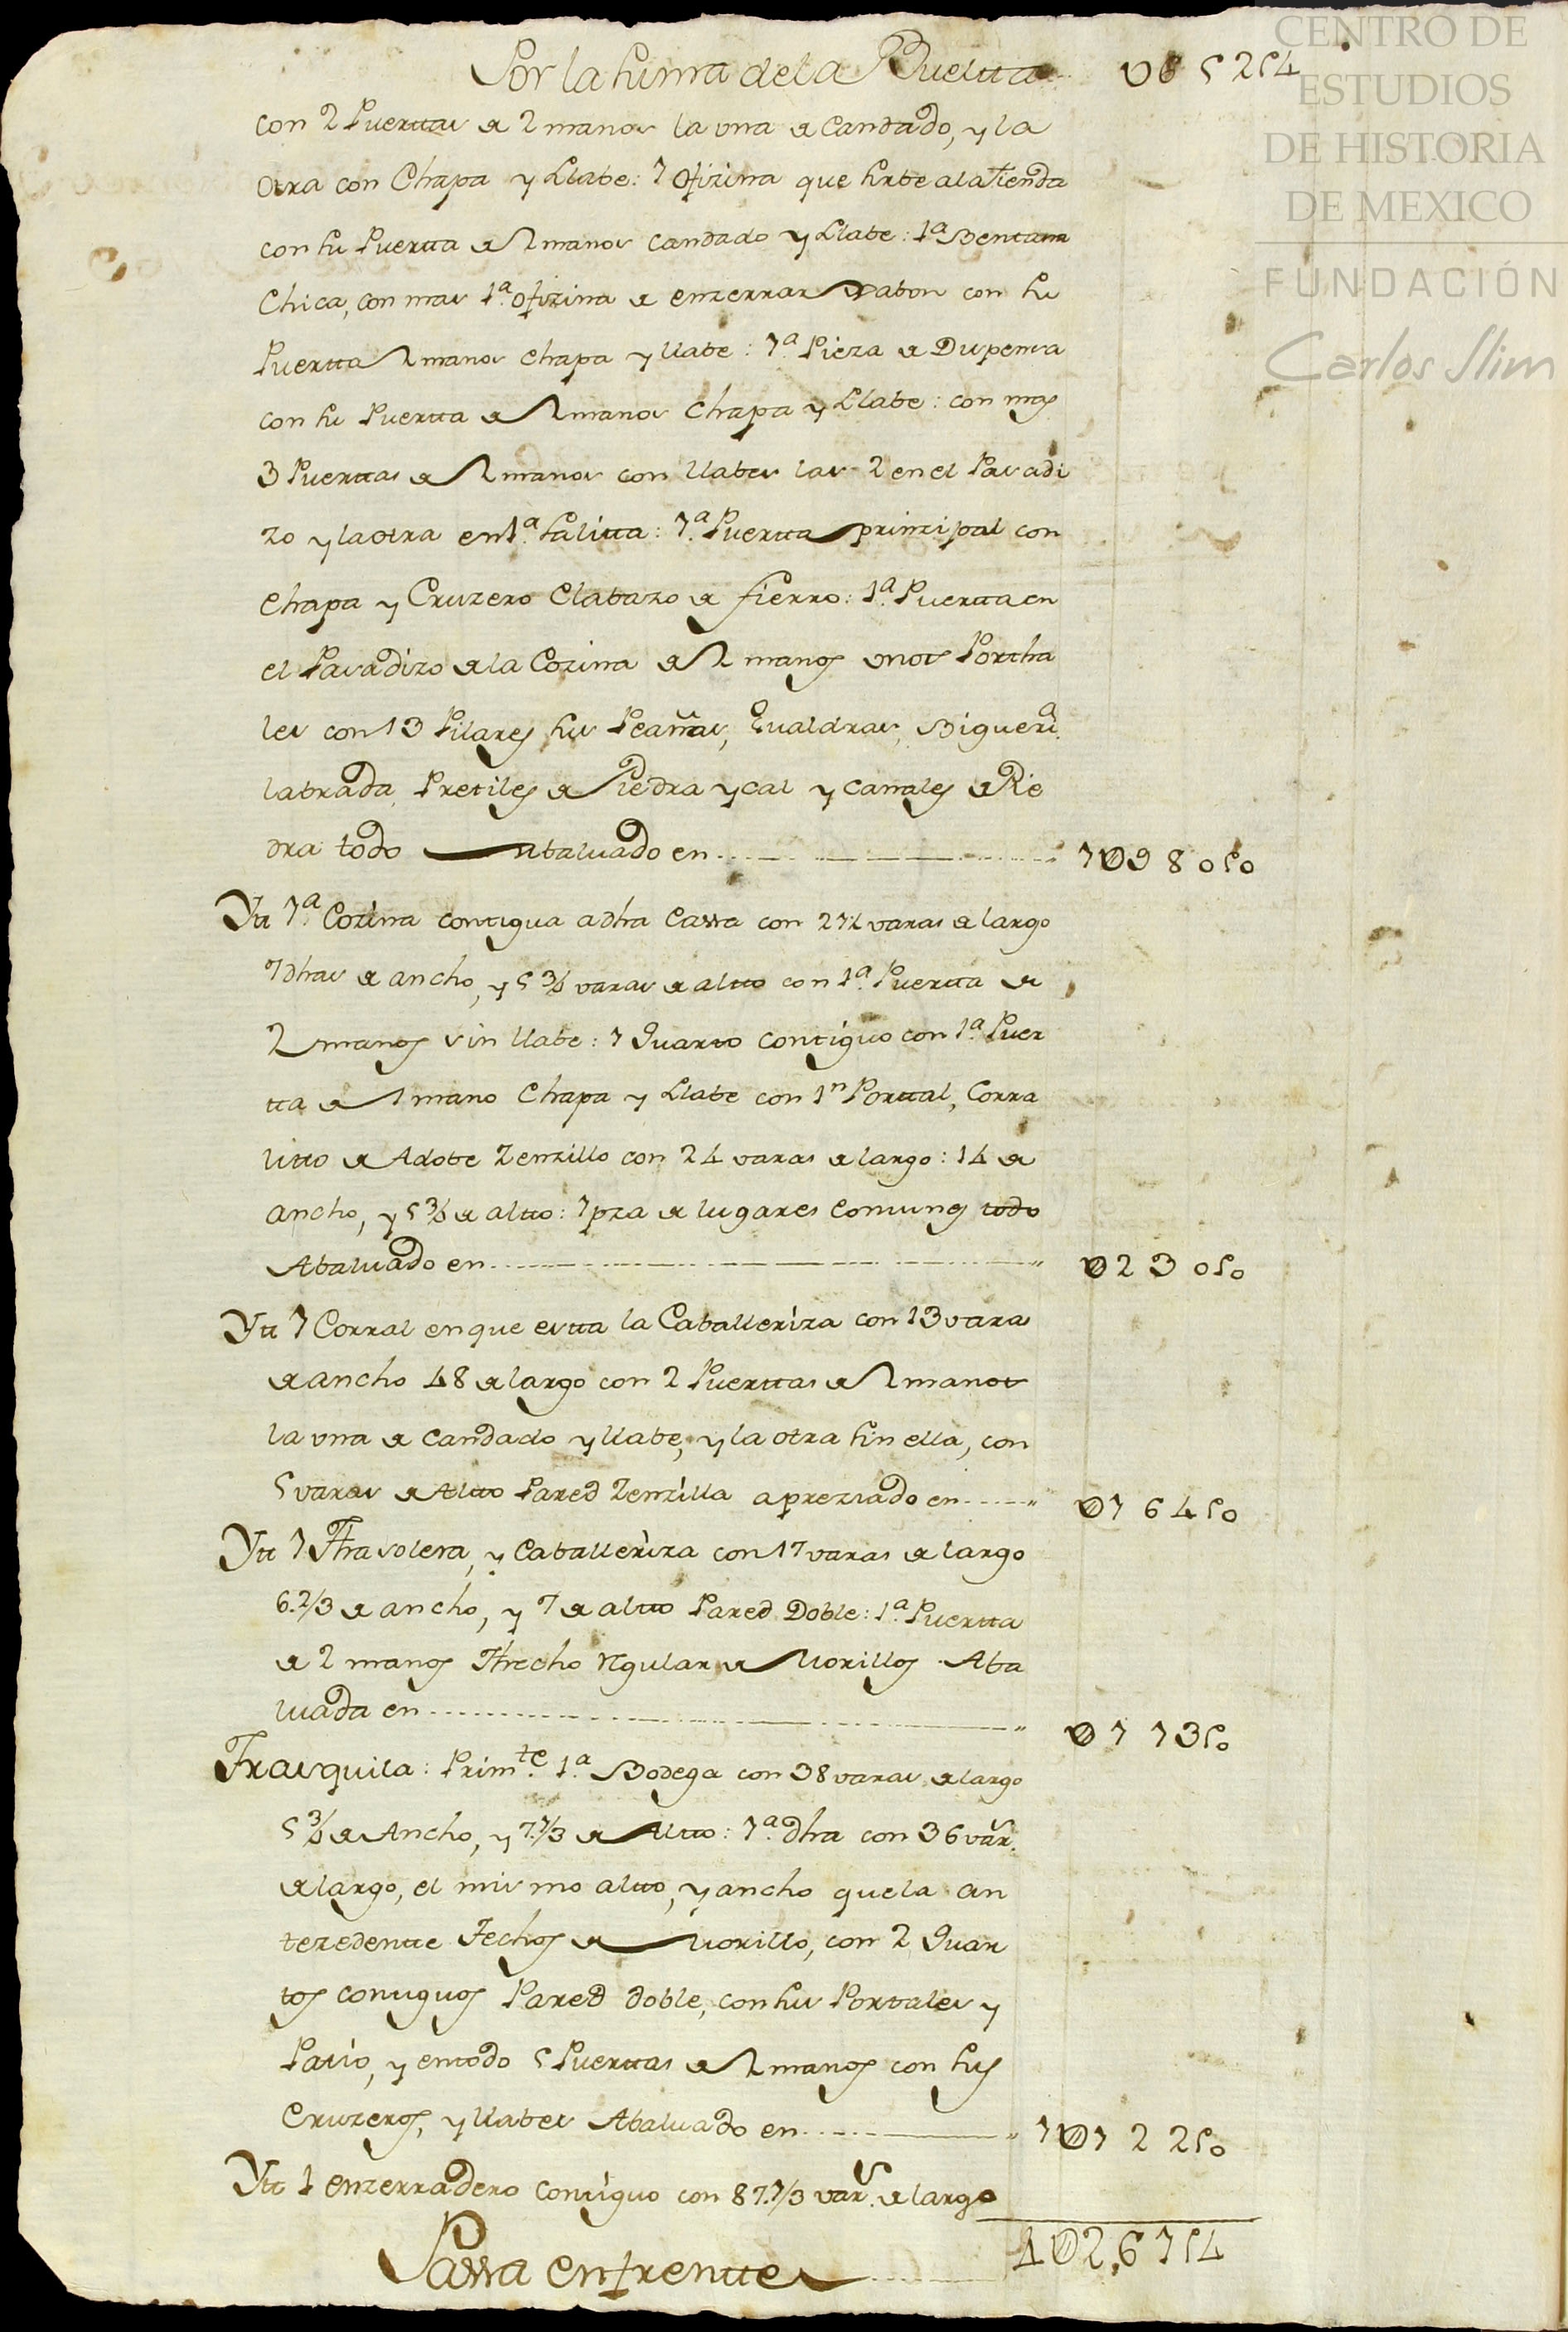 Por la suma de la Buelta U865254
con 2 Puertas de 2 manos la una de Candado, y la
otra con Chapa y Llabe: 1 ofizina que sirbe a la Tienda
con su Puerta de 2 manos candado y Llabe: 1ª Bentana
Chica, con mas 1ª ofizina de enzerrar Xabon con su
Puertta 2 manos chapa y llabe: 1ª Pieza de Dispensa
con su Puertta de 2 manos Chapa y Llabe: con mas
3 Puerttas de 2 manos con llabes las 2 en el Pasadi
zo y la otra en 1ª salitta: 1ª Puertta prinzipal con
Chapa y Cruzero Clabazo de fierro: 1ª Puertta en
el Pasadizo de la Cozina de 2 manos unos Portta
les con 13 Pilares sus Peañas, Gualdras, Bigueria
labrada Pretiles de Piedra y cal y canales de Pie
dra todo Abaluado en 1U098050
Ytt 1ª Cozina contigua a dha Cassa con 27½ varas de largo
7 dhas de ancho, y 5¾ varas de altto con 1ª Puertta de
2 manos sin llabe: 1 Quarto contiguo con 1ª Puer
tta de 1 mano Chapa y Llabe con 1n Porttal, Corra
litto de Adobe Zenzillo con 24 varas de largo: 14 de
ancho, y 5¾ de altto: 1 pza de lugares comunes todo
Abaluado en U23050
Ytt 1 Corral en que estta la Caballeriza con 13 varas
de ancho 48 de largo con 2 Puerttas de 2 manos
la una de candado y llabe, y la otra sin ella, con
5 varas de Altto Pared Zenzilla apreziado en U16450
Ytt 1 Trasolera, y Caballeriza con 17 varas de largo
6.2/3 de ancho, y 7 de altto Pared Doble: 1ª Puertta
de 2 manos Ttecho regular de Morillos Aba
luada en U17350
Trasquila: Primte 1ª Bodega con 38 varas de largo
5¾ de Ancho, y 7.1/3 de Altto: 1ª dha con 36 vars.
de largo, el mismo altto, y ancho que la an
tezedentte Techos de Morillo, con 2 Quar
tos contiguos Pared doble, con sus Portales y
Patio, y en todo 5 Puerttas de 2 manos con sus
Cruzeros, y llabes Abaluado en 1U012250
Ytt 1 enzerradero contiguo con 87.1/3 vars. de largo
Passa enfrentte 4U026754
CENTRO DE
ESTUDIOS
DE HISTORIA
DE MEXICO
FUNDACIÓN
Carlos Slim